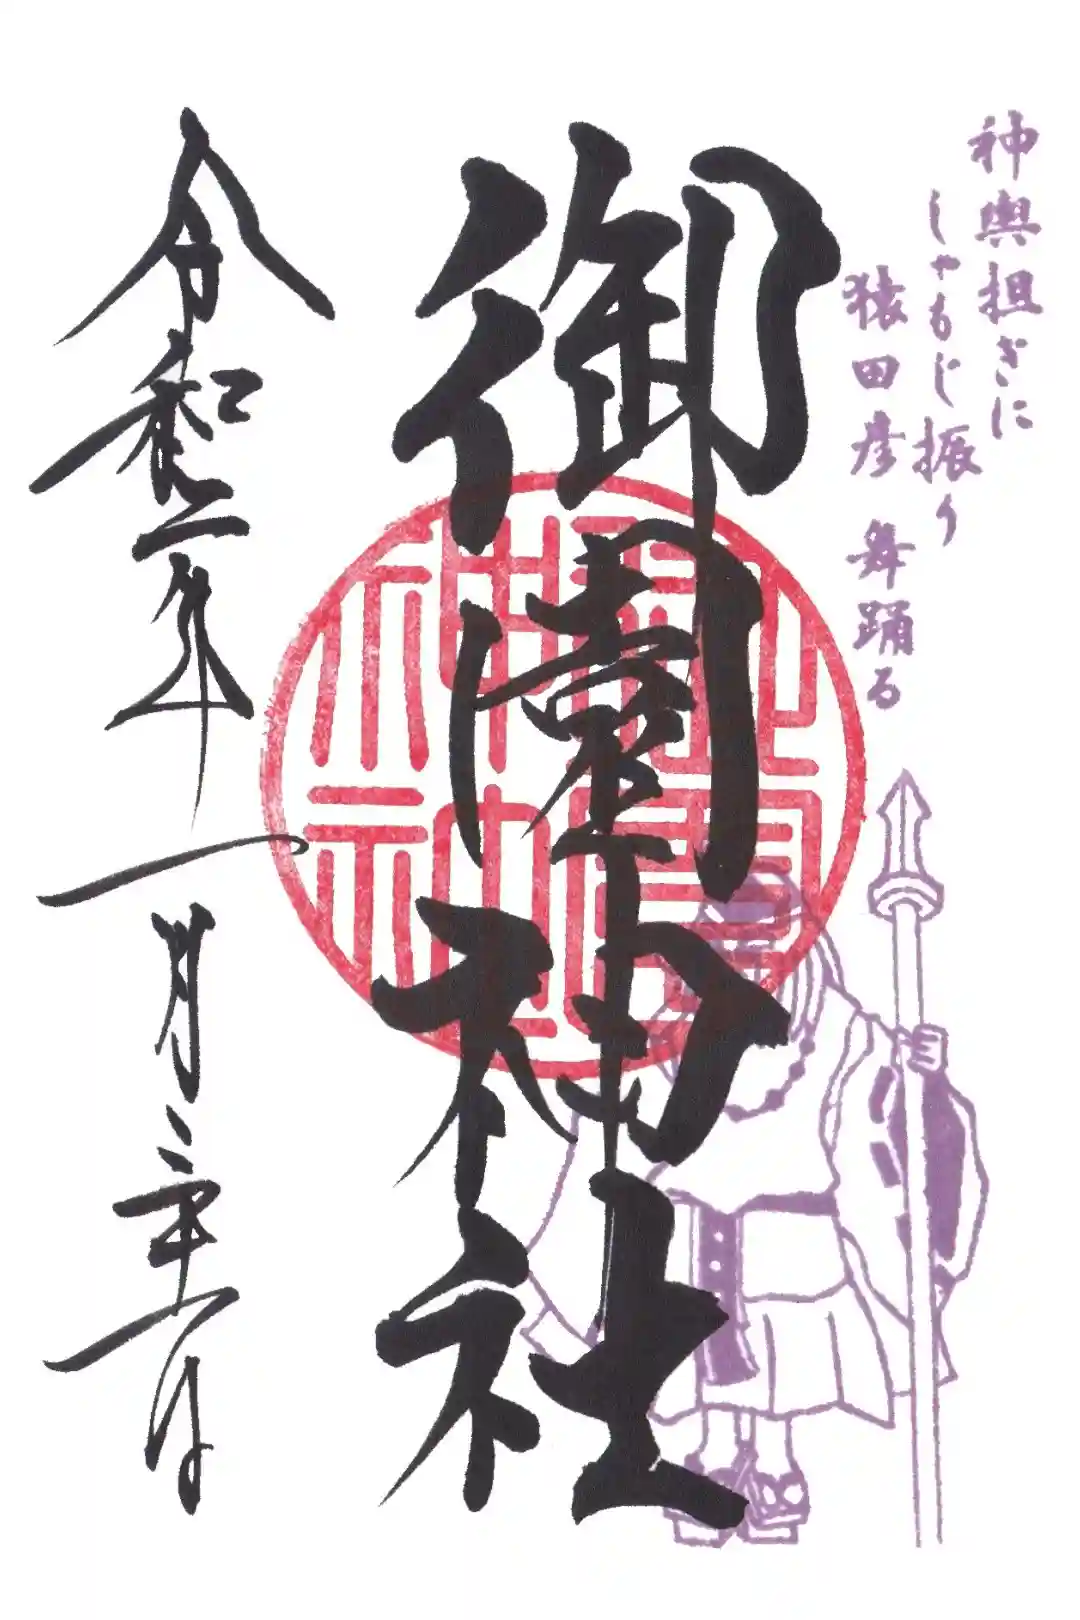 神輿担ぎに
しゃもじ振り
猿田彦 舞踊る
御園神社
令和二年一月